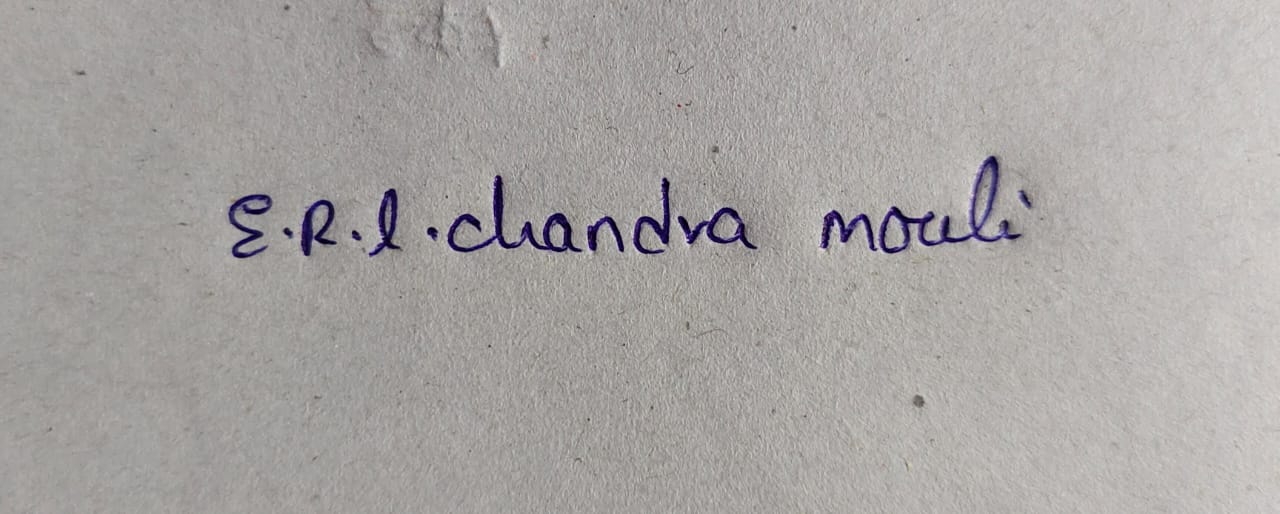 E.R.l.chandra mouli